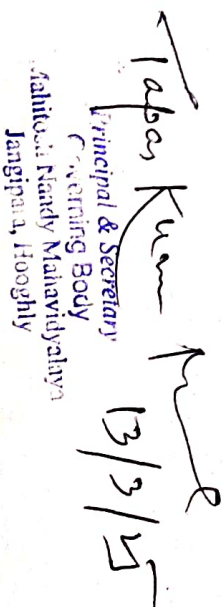 Tapas Kumar
13/3/15
Principal & Secretary
Governing Body
Mahitosh Nandy Mahavidyalaya
Jangipara, Hooghly